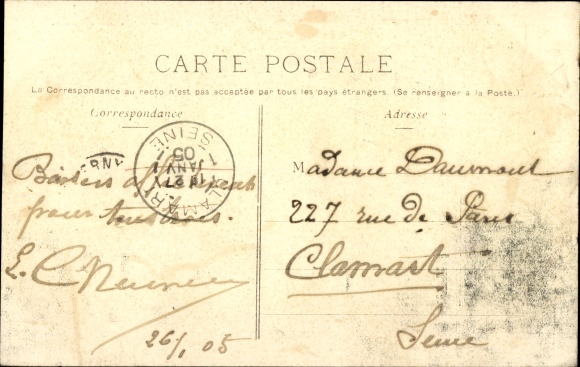 CARTE POSTALE
La Correspondance au recto n'est pas acceptée par tous les pays étrangers. (Se renseigner à la Poste.)
Correspondance
Adresse
CLAMART
SEINE
27
JANV
05
Baisers
pour
E.
26/1 05
Madame Daumont
227 rue de Paris
Clamart
Seine